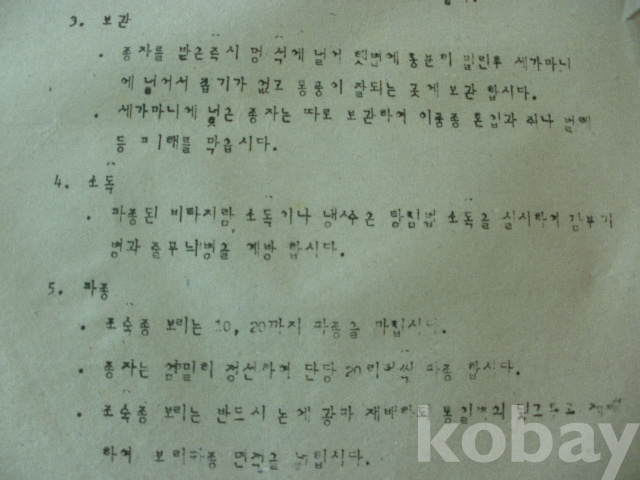 3. 보관
. 종자를 받은즉시 멍석에 널어 햇볕에 충분히 말린후 새가마니
에 넣어서 습기가 없고 통풍이 잘되는 곳에 보관 합시다.
. 새가마니에 넣은 종자는 따로 보관하여 이품종 혼입과 쥐나 벌레
등 피해를 막읍시다.
4. 소독
. 파종전 비타지람 소독기나 냉수온탕침법 소독을 실시하여 깜부기
병과 줄무늬병을 예방 합시다.
5. 파종
. 조숙종 보리는 10, 20까지 파종을 마칩시다.
. 종자는 정선하여 단당 20리터씩 파종 합시다.
. 조숙종 보리는 반드시 논에 광파 재배하고
하여 보리파종 면적을 넓힙시다.
kobay